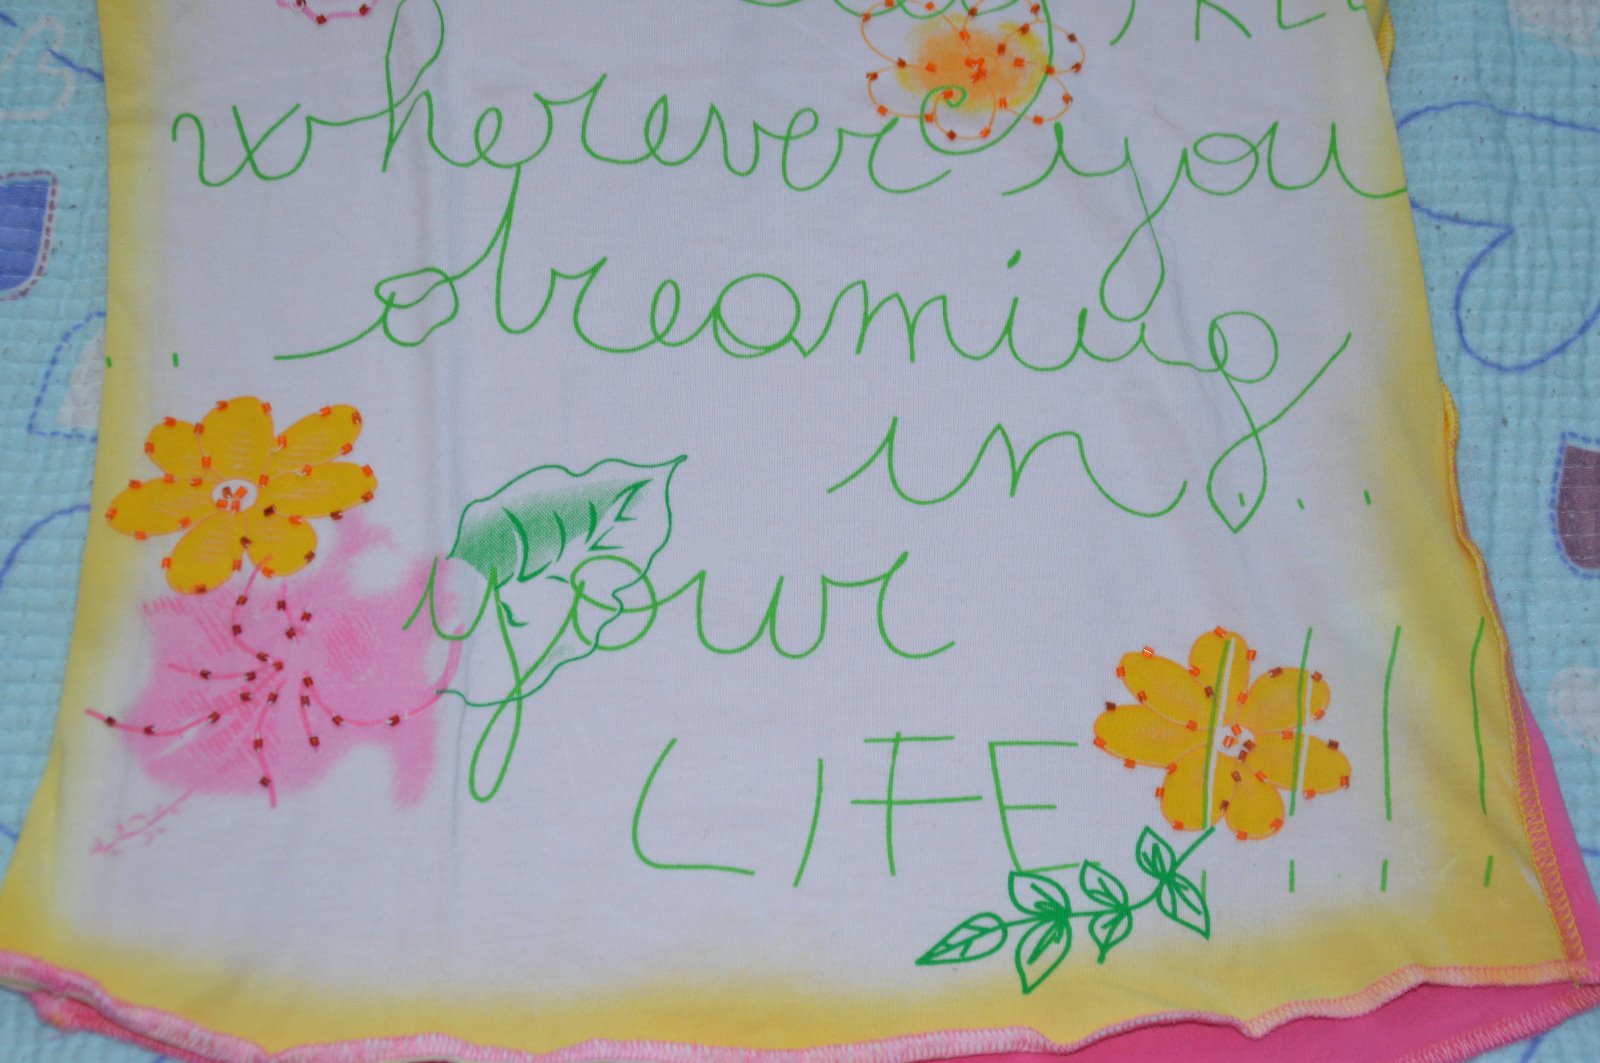 wherever you
.. dreaming
in ...
your
LIFE !!!!